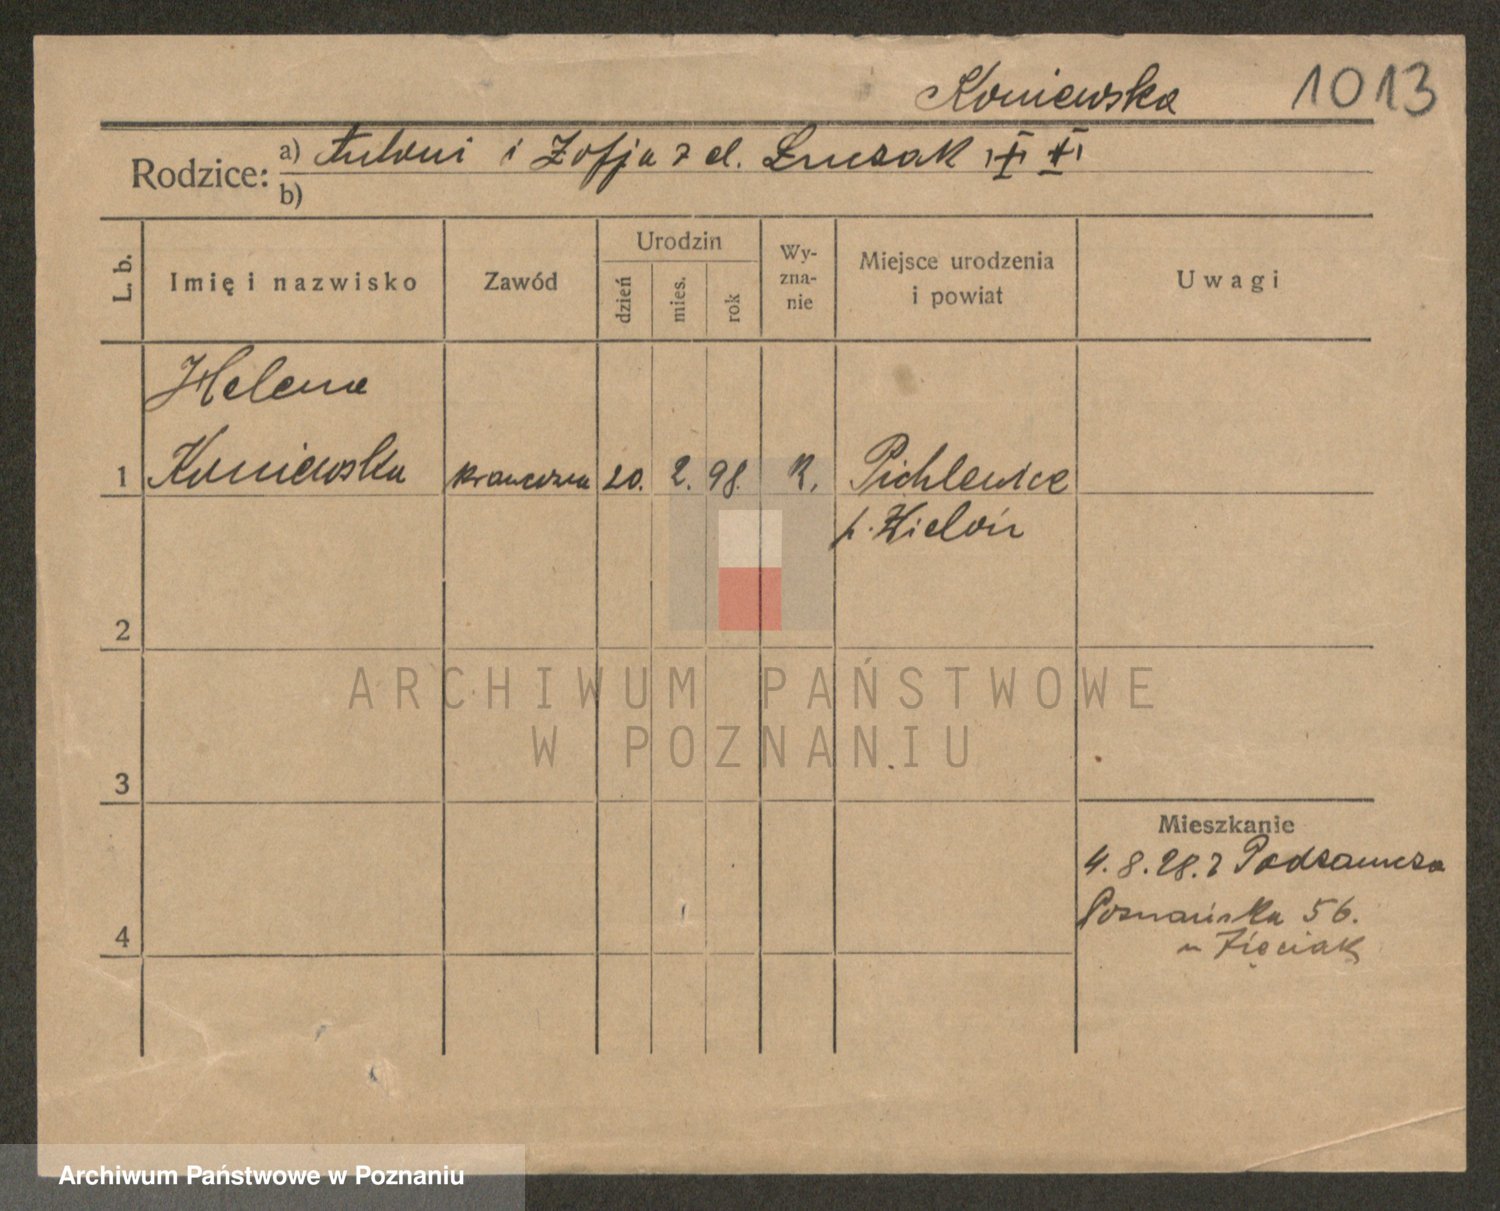 Koniewska 1013
Rodzice: a) Antoni i Zofja z d. Łuczak
b)
L. b. Imię i nazwisko Zawód Urodzin dzień mies. rok Wy-zna-nie Miejsce urodzenia i powiat Uwagi
Helena
1 Koniewska krawcowa 20. 2. 98. K. Pichlewice
p. Wieluń
2
ARCHIWUM PAŃSTWOWE
W POZNANIU
3
Mieszkanie
4. 8. 28. z Podzamcza
Poznańska 56.
4 u Zięciak
Archiwum Państwowe w Poznaniu